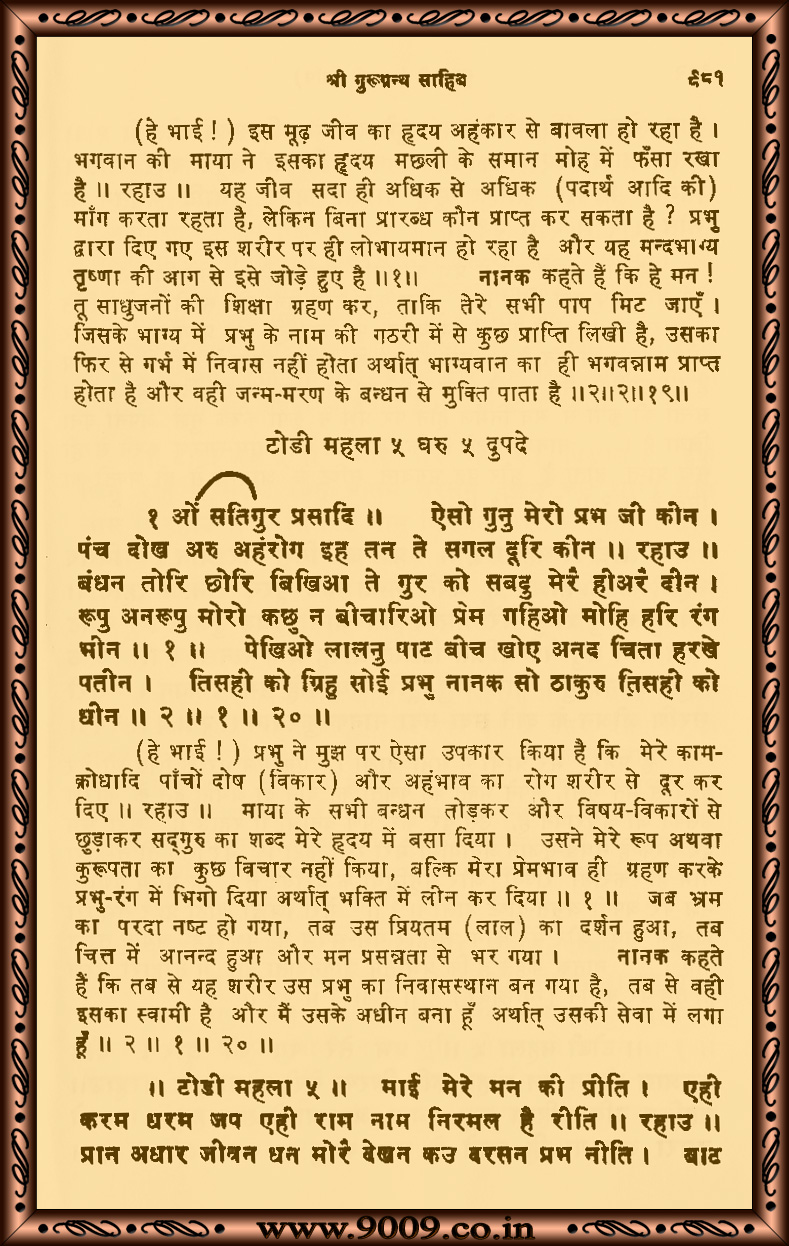 श्री गुरूग्रन्थ साहिब ९८१
(हे भाई ! ) इस मूढ़ जीव का हृदय अहंकार से बावला हो रहा है ।
भगवान की माया ने इसका हृदय मछली के समान मोह में फँसा रखा
है ॥ रहाउ ॥ यह जीव सदा ही अधिक से अधिक (पदार्थ आदि की)
माँग करता रहता है, लेकिन बिना प्रारब्ध कौन प्राप्त कर सकता है ? प्रभु
द्वारा दिए गए इस शरीर पर ही लोभायमान हो रहा है और यह मन्दभाग्य
तृष्णा की आग से इसे जोड़े हुए है ॥१॥ नानक कहते हैं कि हे मन !
तू साधुजनों की शिक्षा ग्रहण कर, ताकि तेरे सभी पाप मिट जाएँ ।
जिसके भाग्य में प्रभु के नाम की गठरी में से कुछ प्राप्ति लिखी है, उसका
फिर से गर्भ में निवास नहीं होता अर्थात् भाग्यवान का ही भगवन्नाम प्राप्त
होता है और वही जन्म-मरण के बन्धन से मुक्ति पाता है ॥२॥२॥१९॥
टोडी महला ५ घरु ५ दुपदे
१ ओं सतिगुर प्रसादि ॥ ऐसो गुनु मेरो प्रभ जी कीन ।
पंच दोख अरु अहंरोग इह तन ते सगल दूरि कीन ॥ रहाउ ॥
बंधन तोरि छोरि बिखिआ ते गुर को सबदु मेरै हीअरै दीन ।
रूपु अनरूपु मोरो कछु न बीचारिओ प्रेम गहिओ मोहि हरि रंग
भीन ॥ १ ॥ पेखिओ लालनु पाट बीच खोए अनद चिता हरखे
पतीन । तिसही को ग्रिहु सोई प्रभु नानक सो ठाकुरु तिसही को
धीन ॥ २ ॥ १ ॥ २० ॥
(हे भाई ! ) प्रभु ने मुझ पर ऐसा उपकार किया है कि मेरे काम-
क्रोधादि पाँचों दोष (विकार) और अहंभाव का रोग शरीर से दूर कर
दिए ॥ रहाउ ॥ माया के सभी बन्धन तोड़कर और विषय-विकारों से
छुड़ाकर सद्गुरु का शब्द मेरे हृदय में बसा दिया । उसने मेरे रूप अथवा
कुरूपता का कुछ विचार नहीं किया, बल्कि मेरा प्रेमभाव ही ग्रहण करके
प्रभु-रंग में भिगो दिया अर्थात् भक्ति में लीन कर दिया ॥ १ ॥ जब भ्रम
का परदा नष्ट हो गया, तब उस प्रियतम (लाल) का दर्शन हुआ, तब
चित्त में आनन्द हुआ और मन प्रसन्नता से भर गया । नानक कहते
हैं कि तब से यह शरीर उस प्रभु का निवासस्थान बन गया है, तब से वही
इसका स्वामी है और मैं उसके अधीन बना हूँ अर्थात् उसकी सेवा में लगा
हूँ ॥ २ ॥ १ ॥ २० ॥
॥ टोडी महला ५ ॥ माई मेरे मन की प्रीति । एही
करम धरम जप एही राम नाम निरमल है रीति ॥ रहाउ ॥
प्रान अधार जीवन धन मोरै देखन कउ दरसन प्रभ नीति । बाट
www.9009.co.in